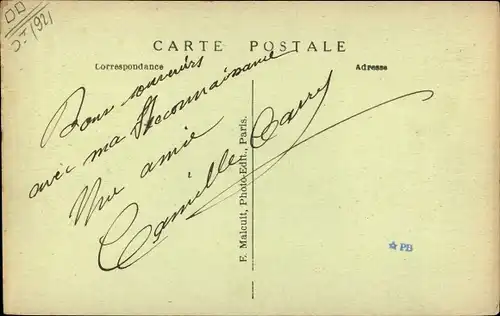 DD
1921
CARTE POSTALE
Correspondance
Adresse
Bons souvenirs
avec ma Reconnaissance
Une amie
Camille Carry
F. Malcuit, Photo-Edit., Paris.
PB